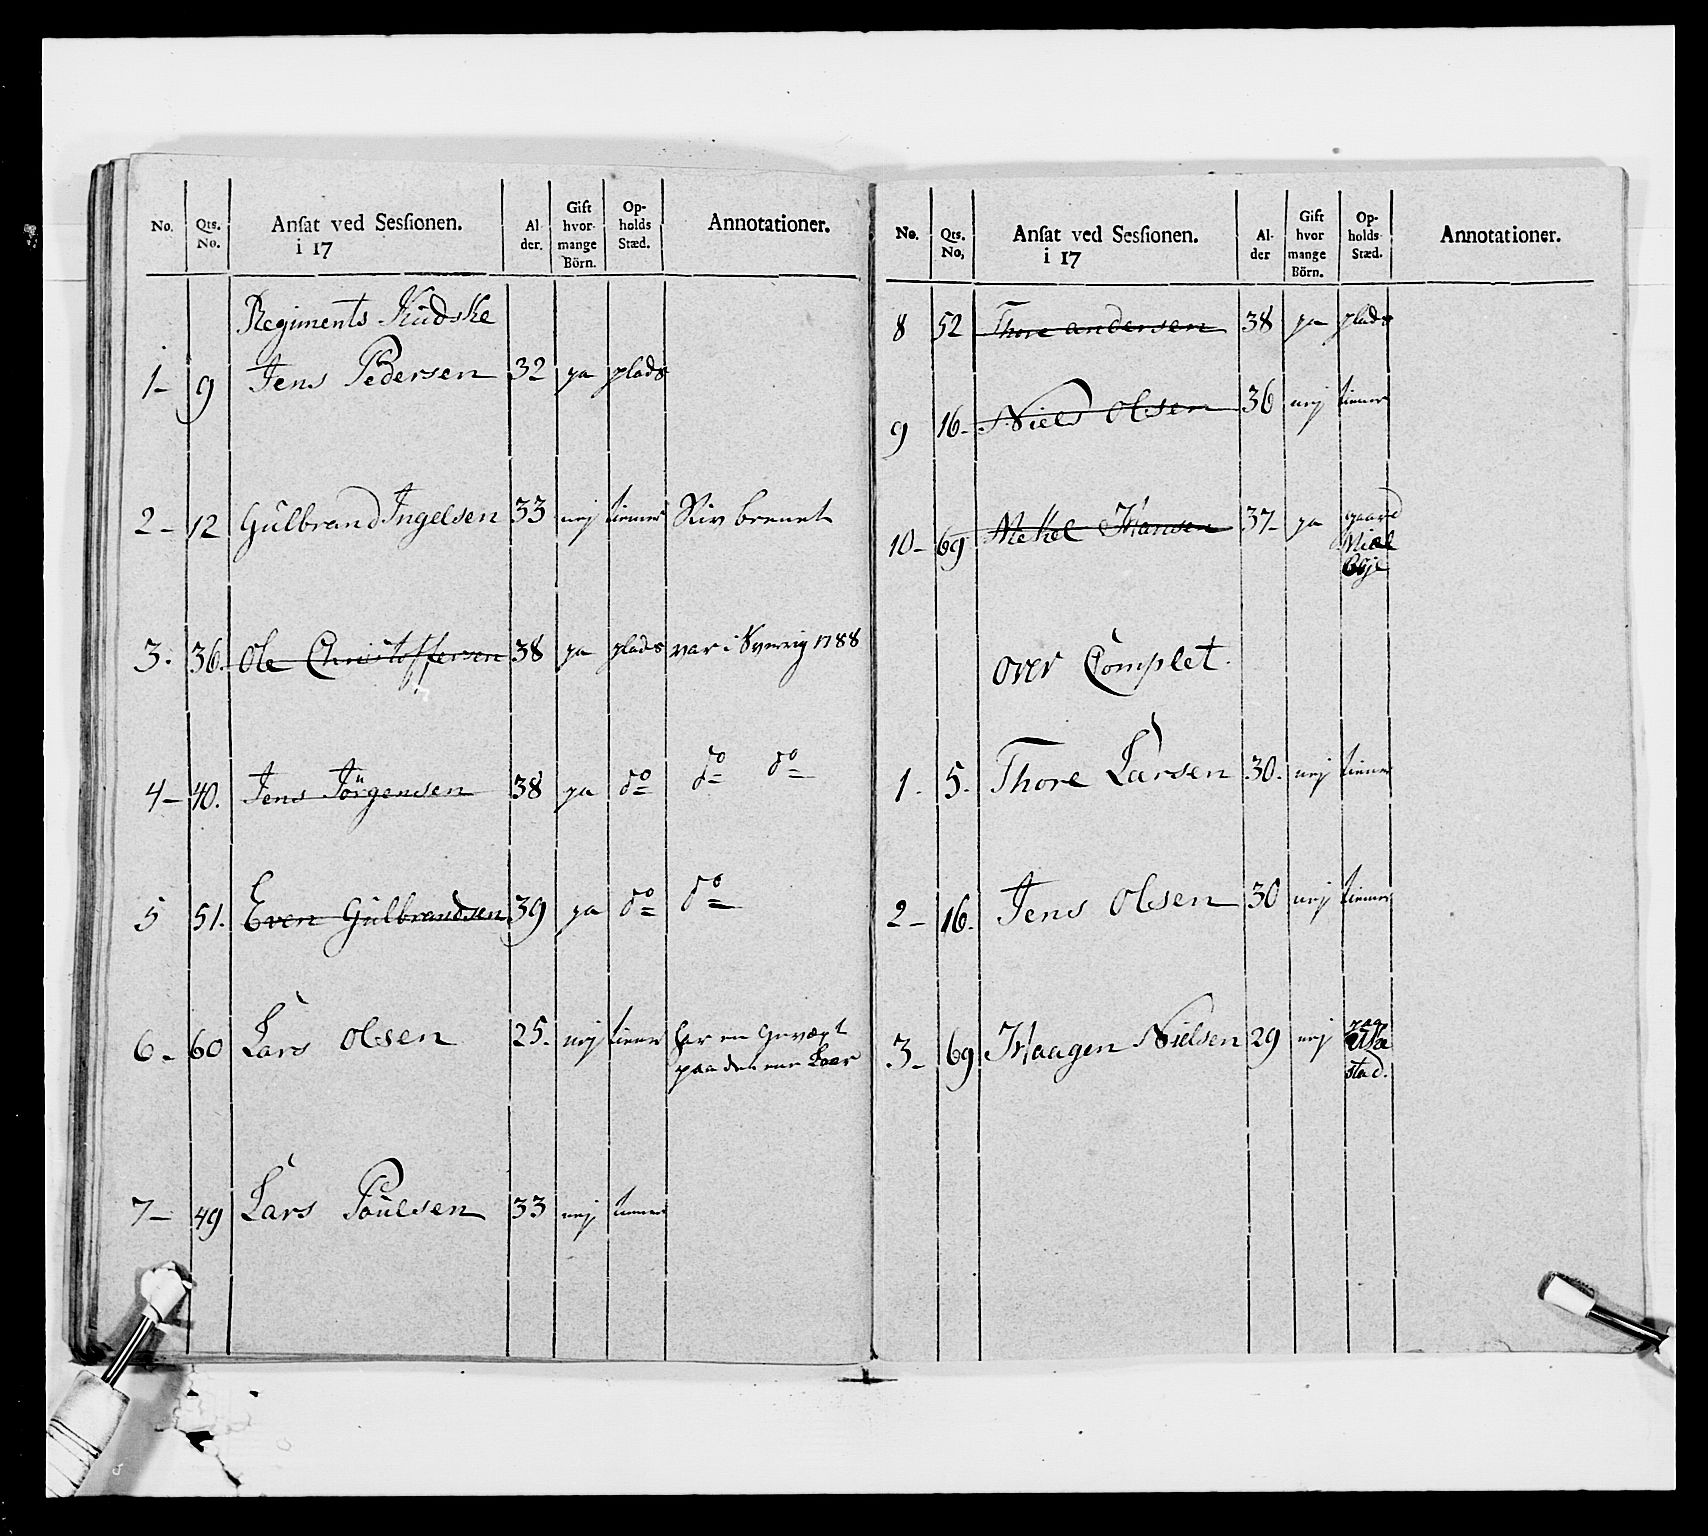 No. Qts. No. Ansat ved Sessionen. i 17 Al der. Gift hvor- mange Börn. Op- holds Stæd. Annotationer.
Regiments Kudske
1- 9 Jens Pedersen 32 ja plads
2- 12 Gulbrand Ingelsen 33 nej tiener brenet
3. 36. Ole Christoffersen 38 ja plads var i Sverrig 1788
4- 40. Jens Jörgensen 38 ja do do do
5 51. Even Gulbrandsen 39 ja do do
6- 60 Lars Olsen 25- nej tiener har en Gevæxt
paa det ene Laar
7- 49 Lars Poulsen 33 nej tiener
No. Qts. No, Ansat ved Sessionen. i 17 Al- der Gift hvor mange Börn. Op- holds- Stæd. Annotationer.
8 52 Thore andersen 38 ja plads
9 16- Niels Olsen 36 nej tiener
10- 69 Mekel Hansen 37- ja gaard
over Complet.
1. 5. Thore Larsen 30. nej tiener
2- 16. Jens Olsen 30 nej tiener
3- 69 Haagen Nielsen 29 nej paa
stad.